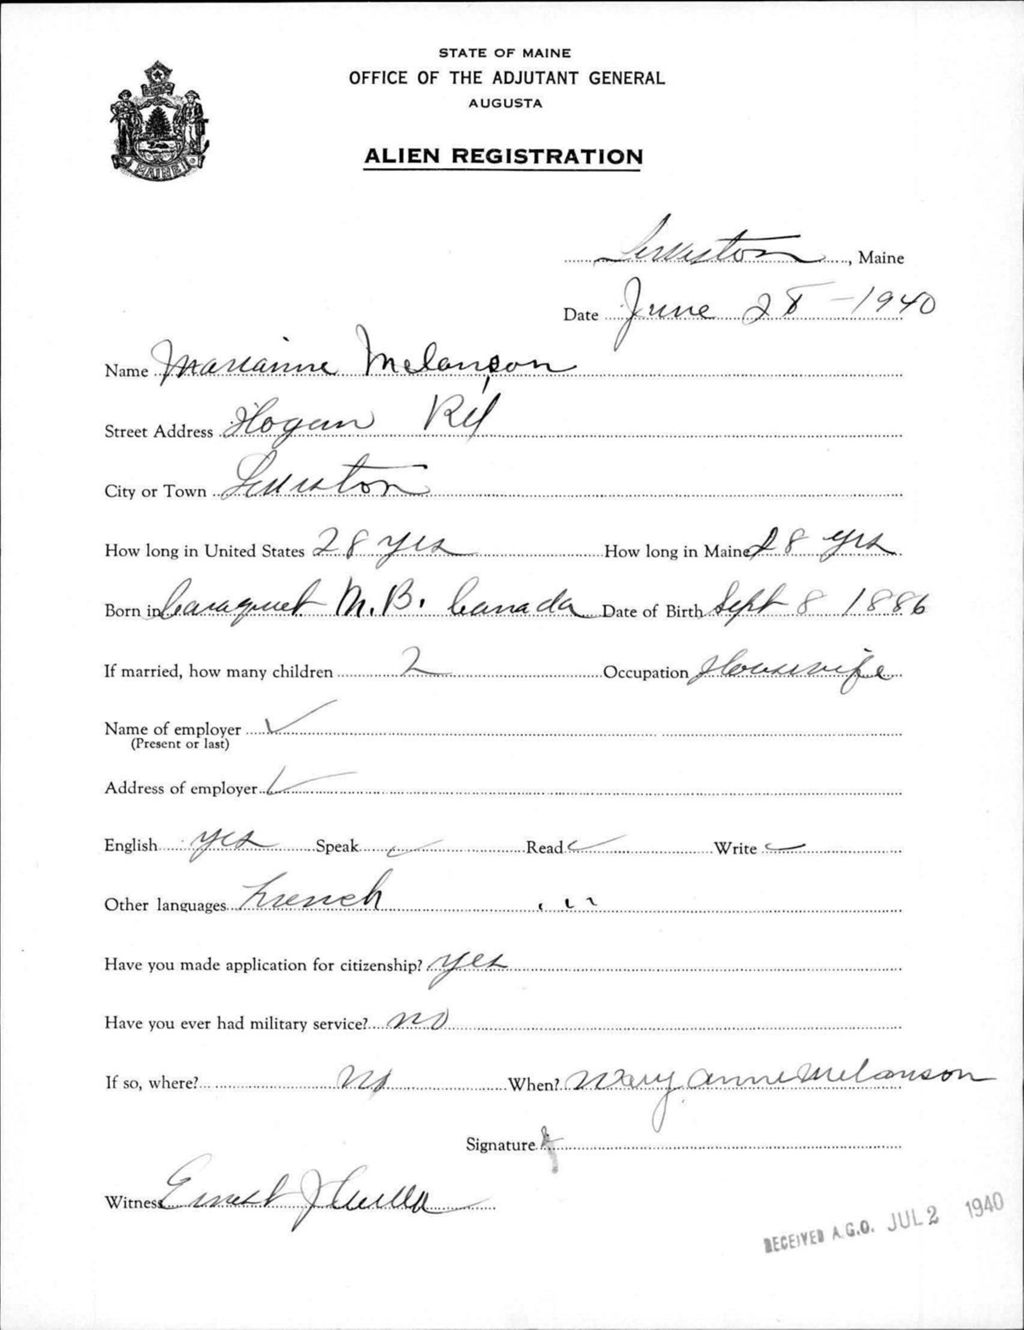 STATE OF MAINE
OFFICE OF THE ADJUTANT GENERAL
AUGUSTA
MAINE
ALIEN REGISTRATION
Lewiston, Maine
Date June 28 - 1940
Name Marianne Melanson
Street Address Hogan Rd
City or Town Lewiston
How long in United States 28 yrs How long in Maine 28 yrs
Born in Caraquet N.B. Canada Date of Birth Sept 8 1886
If married, how many children 2 Occupation Housewife
Name of employer ✓
(Present or last)
Address of employer ✓
English yes Speak ✓ Read ✓ Write ✓
Other languages French
Have you made application for citizenship? yes
Have you ever had military service? no
If so, where? No When? Mary Anne Melanson
Signature
Witness Ernest J
RECEIVED A.G.O. JUL 2 1940